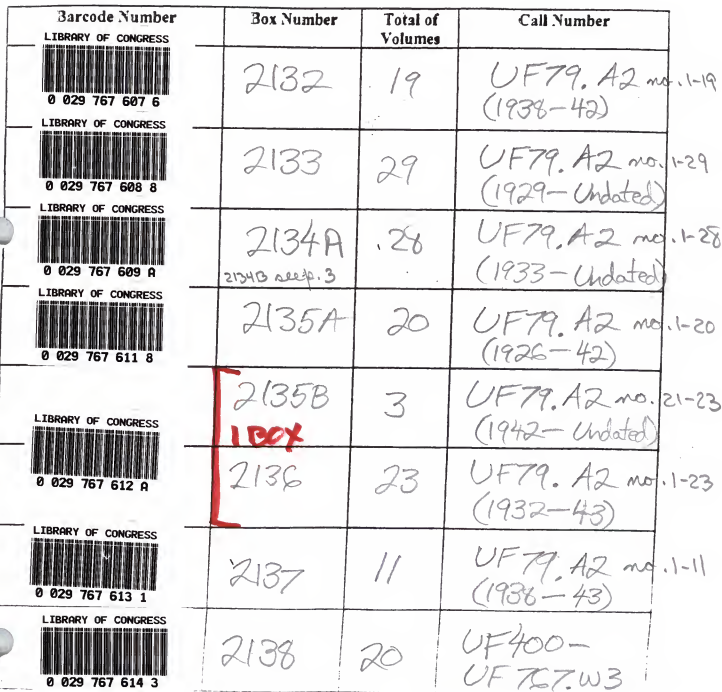 Barcode Number Box Number Total of Volumes Call Number
LIBRARY OF CONGRESS
0 029 767 607 6
2132 19 UF79. A2 no. 1-19
(1938-42)
LIBRARY OF CONGRESS
0 029 767 608 8
2133 29 UF79. A2 no. 1-29
(1929- Undated)
LIBRARY OF CONGRESS
0 029 767 609 A
2134A 28 UF79. A2 no. 1-28
2134B see p. 3 (1933- Undated)
LIBRARY OF CONGRESS
0 029 767 611 8
2135A 20 UF79. A2 no. 1-20
(1926-42)
2135B 3 UF79. A2 no. 21-23
1 BOX (1942- Undated)
LIBRARY OF CONGRESS
0 029 767 612 A
2136 23 UF79. A2 no. 1-23
(1932-43)
LIBRARY OF CONGRESS
0 029 767 613 1
2137 11 UF79. A2 no. 1-11
(1938-43)
LIBRARY OF CONGRESS
0 029 767 614 3
2138 20 UF400-
UF767.W3